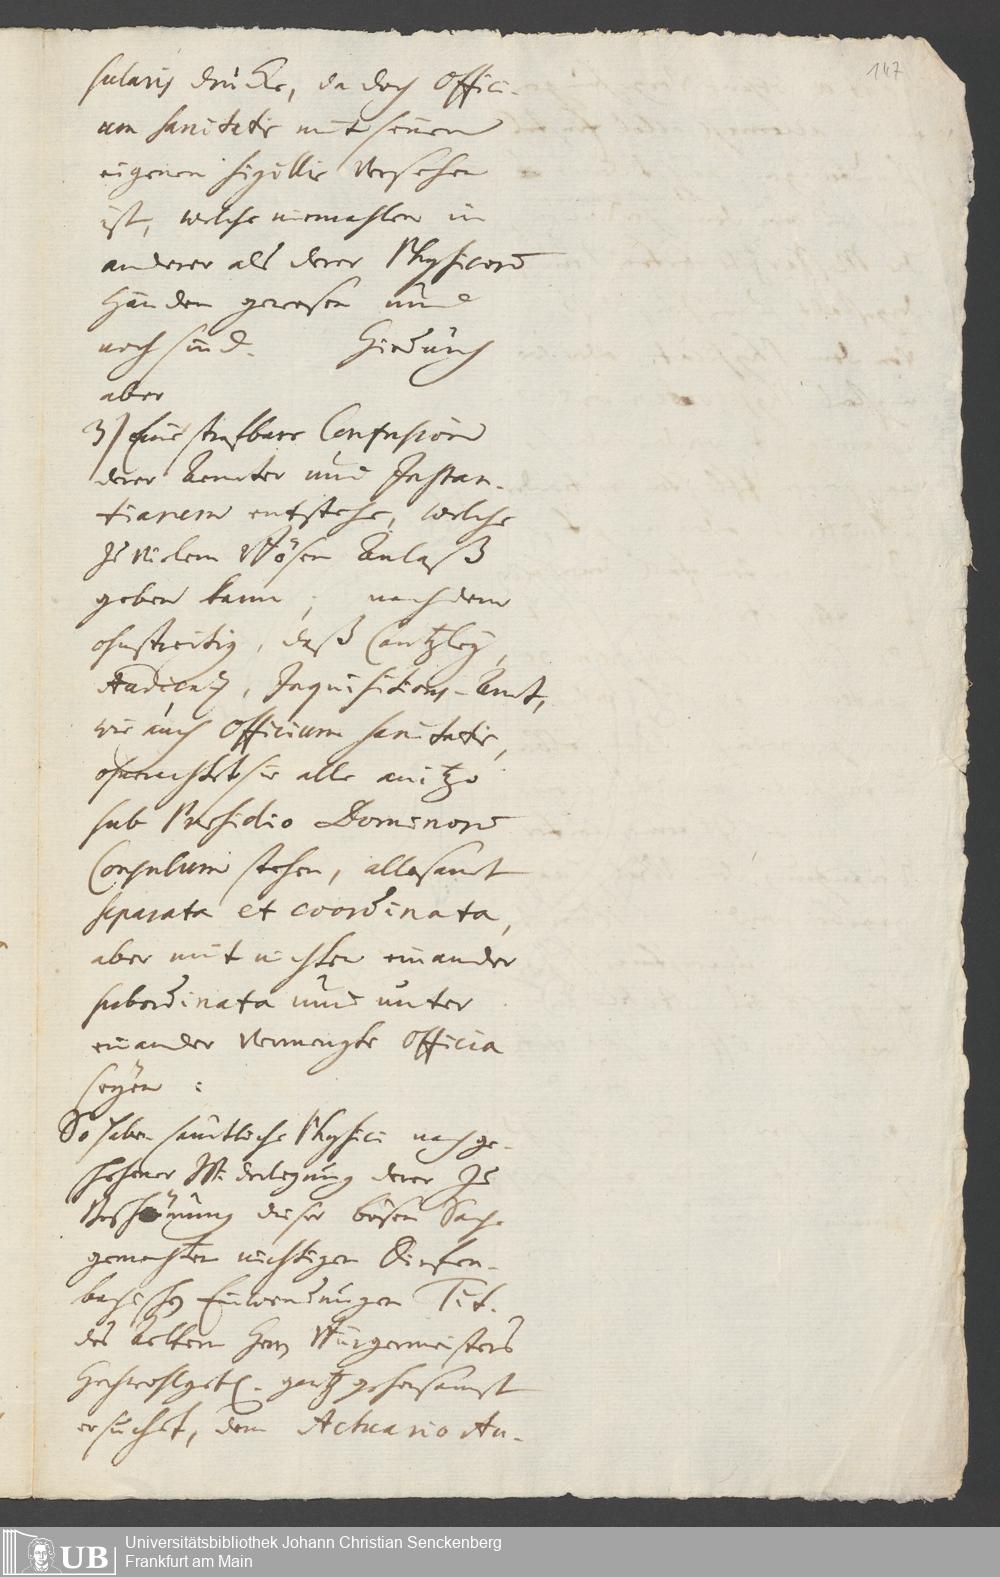 147
sularis drücke, da doch Offici-
um sanitatis mit seinen
eigenen sigillis versehen
ist, welche niemahlen in
anderer als derer Physicorum
Händen gewesen und
noch sind. Hierdurch
aber
3) Eine strafbare Confusion
derer Aemter und Instan-
tiarum entstehe, welche
zu vielem Bösen Anlaß
geben kann; nachdem
ohnstreitig, daß Cantzley,
Audienz, Inquisitions-Amt,
wie auch Officium sanitatis,
ohnerachtet sie alle anitzo
sub Praesidio Dominorum
Consulum stehen, allesamt
separata et coordinata,
aber mit nichten einander
subordinata und unter
einander vermengte Officia
seyen:
So haben sämtliche Physici nach ge-
schehener Wiederlegung derer zu
Beschönung dieser bösen Sache
gemachten nichtigen Diefen-
bachischen Einwendungen Tit.
des Aeltern Herrn Bürgermeisters
Hochwohlgeb. gantz gehorsamst
ersuchet, dem Actuario Au-
UB
Universitätsbibliothek Johann Christian Senckenberg
Frankfurt am Main